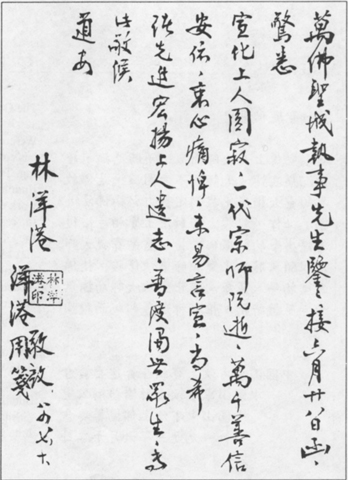 萬佛聖城執事先生鑒：接六月廿八日函，
驚悉
宣化上人圓寂，一代宗師既逝，萬千善信
安依，衷心痛悼，未易言宣，尚希
諸先進宏揚上人遺志，普度濁世眾生，專
此敬候
道安
林洋港
敬啟
洋港用箋